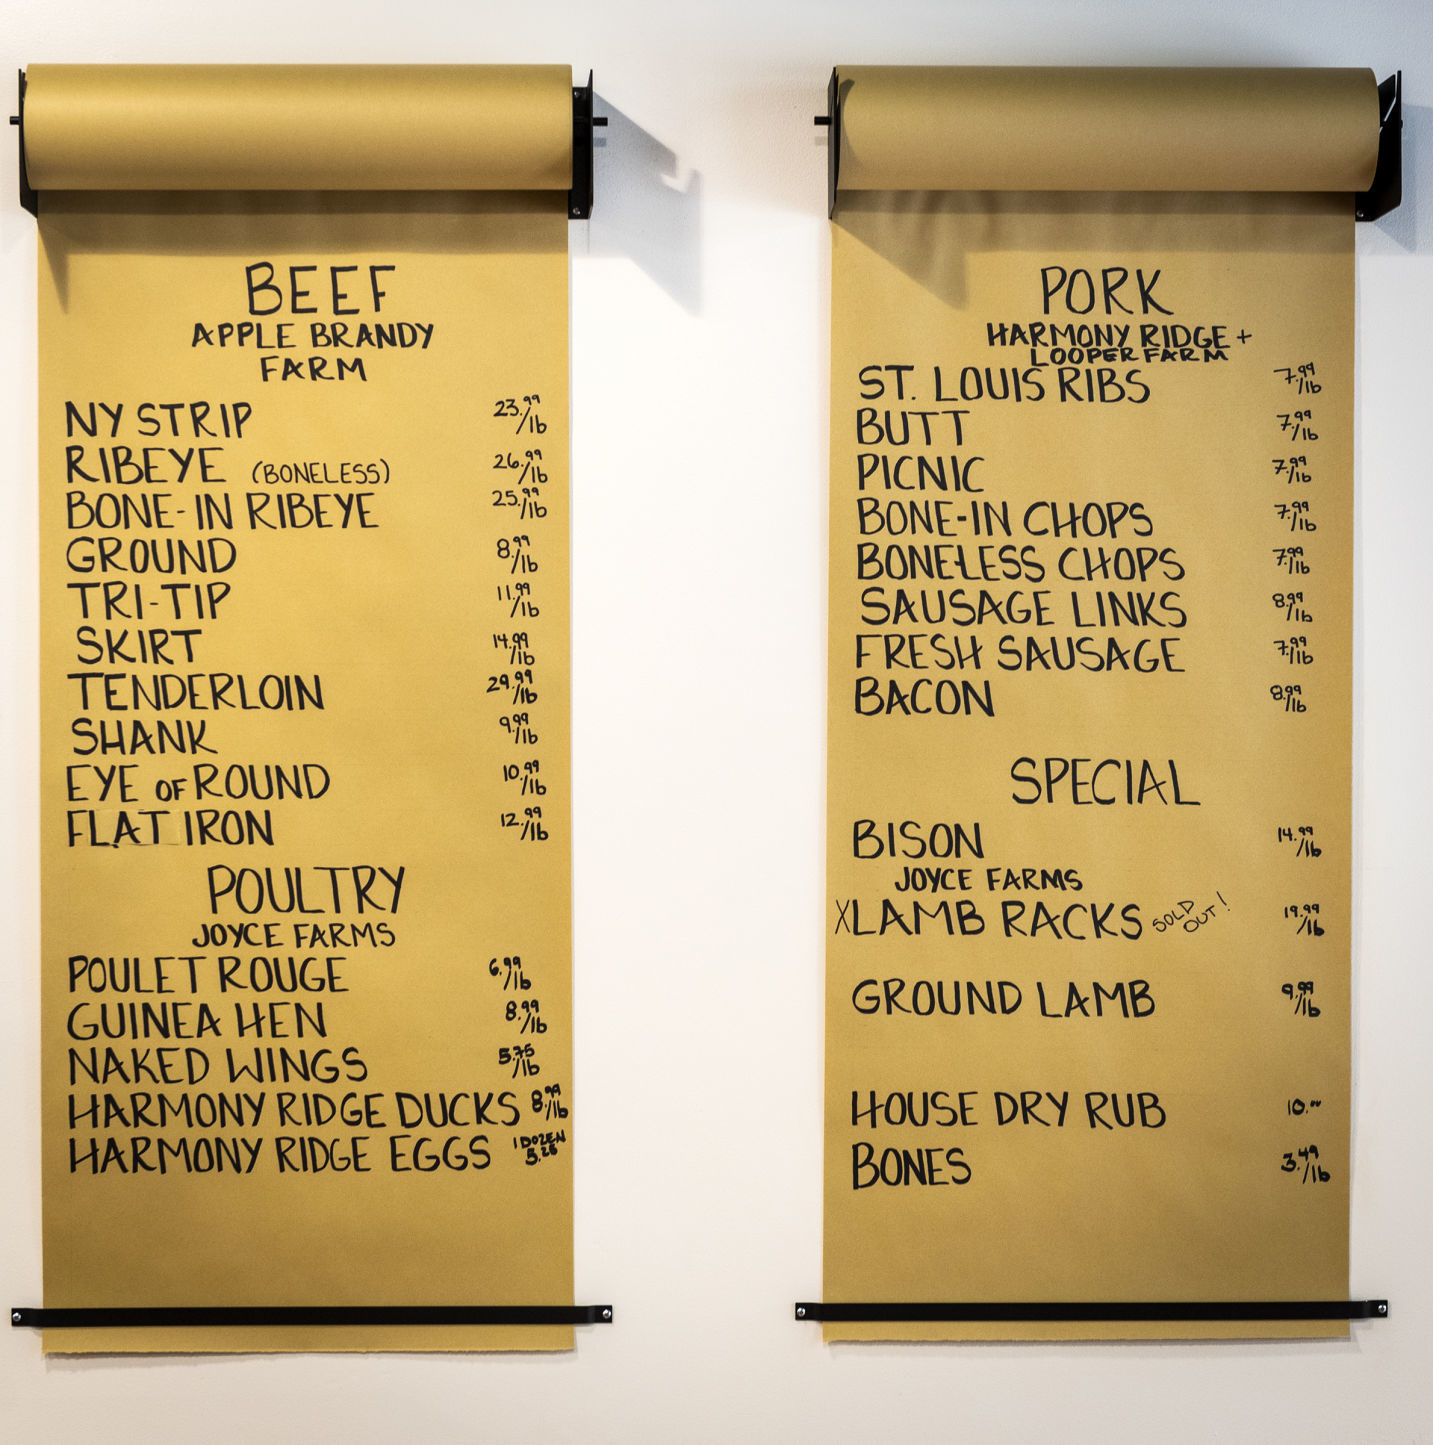 BEEF
APPLE BRANDY
FARM
NY STRIP 23.99/lb
RIBEYE (BONELESS) 26.99/lb
BONE-IN RIBEYE 25.99/lb
GROUND 8.99/lb
TRI-TIP 11.99/lb
SKIRT 14.99/lb
TENDERLOIN 29.99/lb
SHANK 9.99/lb
EYE OF ROUND 10.99/lb
FLAT IRON 12.99/lb
POULTRY
JOYCE FARMS
POULET ROUGE 6.99/lb
GUINEA HEN 8.99/lb
NAKED WINGS 5.75/lb
HARMONY RIDGE DUCKS 8.99/lb
HARMONY RIDGE EGGS 1 DOZEN 5.25
PORK
HARMONY RIDGE +
LOOPER FARM
ST. LOUIS RIBS 7.99/lb
BUTT 7.99/lb
PICNIC 7.99/lb
BONE-IN CHOPS 7.99/lb
BONELESS CHOPS 7.99/lb
SAUSAGE LINKS 8.99/lb
FRESH SAUSAGE 7.99/lb
BACON 8.99/lb
SPECIAL
BISON 14.99/lb
JOYCE FARMS
X LAMB RACKS SOLD OUT! 19.99/lb
GROUND LAMB 9.99/lb
HOUSE DRY RUB 10.00
BONES 3.49/lb